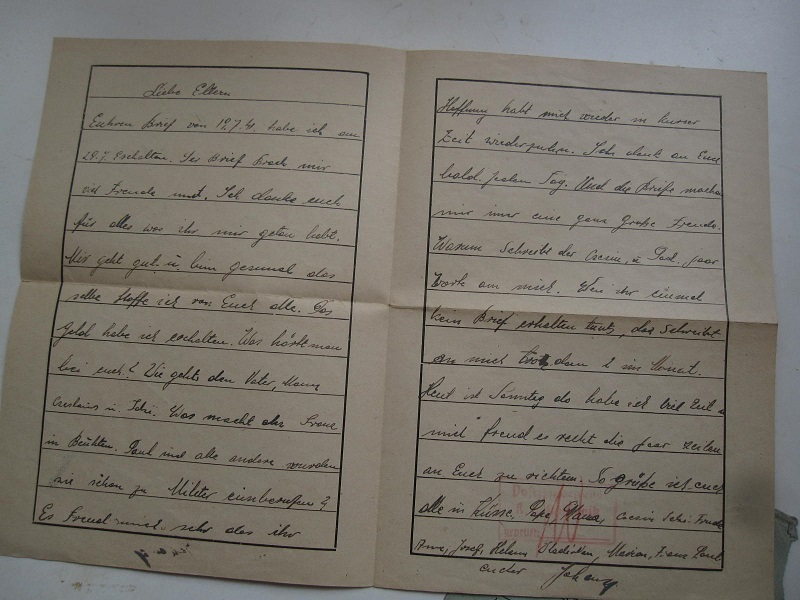 Liebe Eltern
Euhren Brief von 12.7.41 habe ich am
29.7. erhalten. Der Brief brach mir
viel Freude mit. Ich danke euch
für alles was ihr mir geten habt.
Mir geht gut u. bin gesund das
selbe hoffe ich von Euch alle. Das
Geld habe ich erhalten. Was hört man
bei euch? Wie gehts den Vater, Mama
u. Was macht der Franz
in Paul und alle andere wurden
sie schon zu Militer einberufen?
Es freud mich sehr das ihr
Hoffnung habt mich wieder in kurzer
Zeit Ich denk an Euch
bald jeden Tag. Und die Briefe machen
mir imer eine ganz große Freude.
Warum schreibt der u. Paul paar
Worte an mich. Wen ihr einmal
kein Brief erhalten tuts, das schreibt
an mich trotzdem 2 im Monat.
Heut ist Sonntag da habe ich viel Zeit u
mich freud es recht die paar Zeilen
an Euch zu richten. So grüße ich euch
alle in Küsse. Papa, Mama,
Josef, Helena Marian, Franz Paul
euer Johann